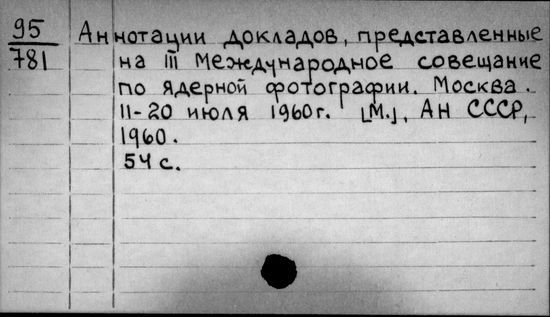 95
781
Аннотации докладов, представленные
на III Международное совещание
по ядерной фотографии. Москва.
11-20 июля 1960г. [М.], АН СССР,
1960.
54 с.